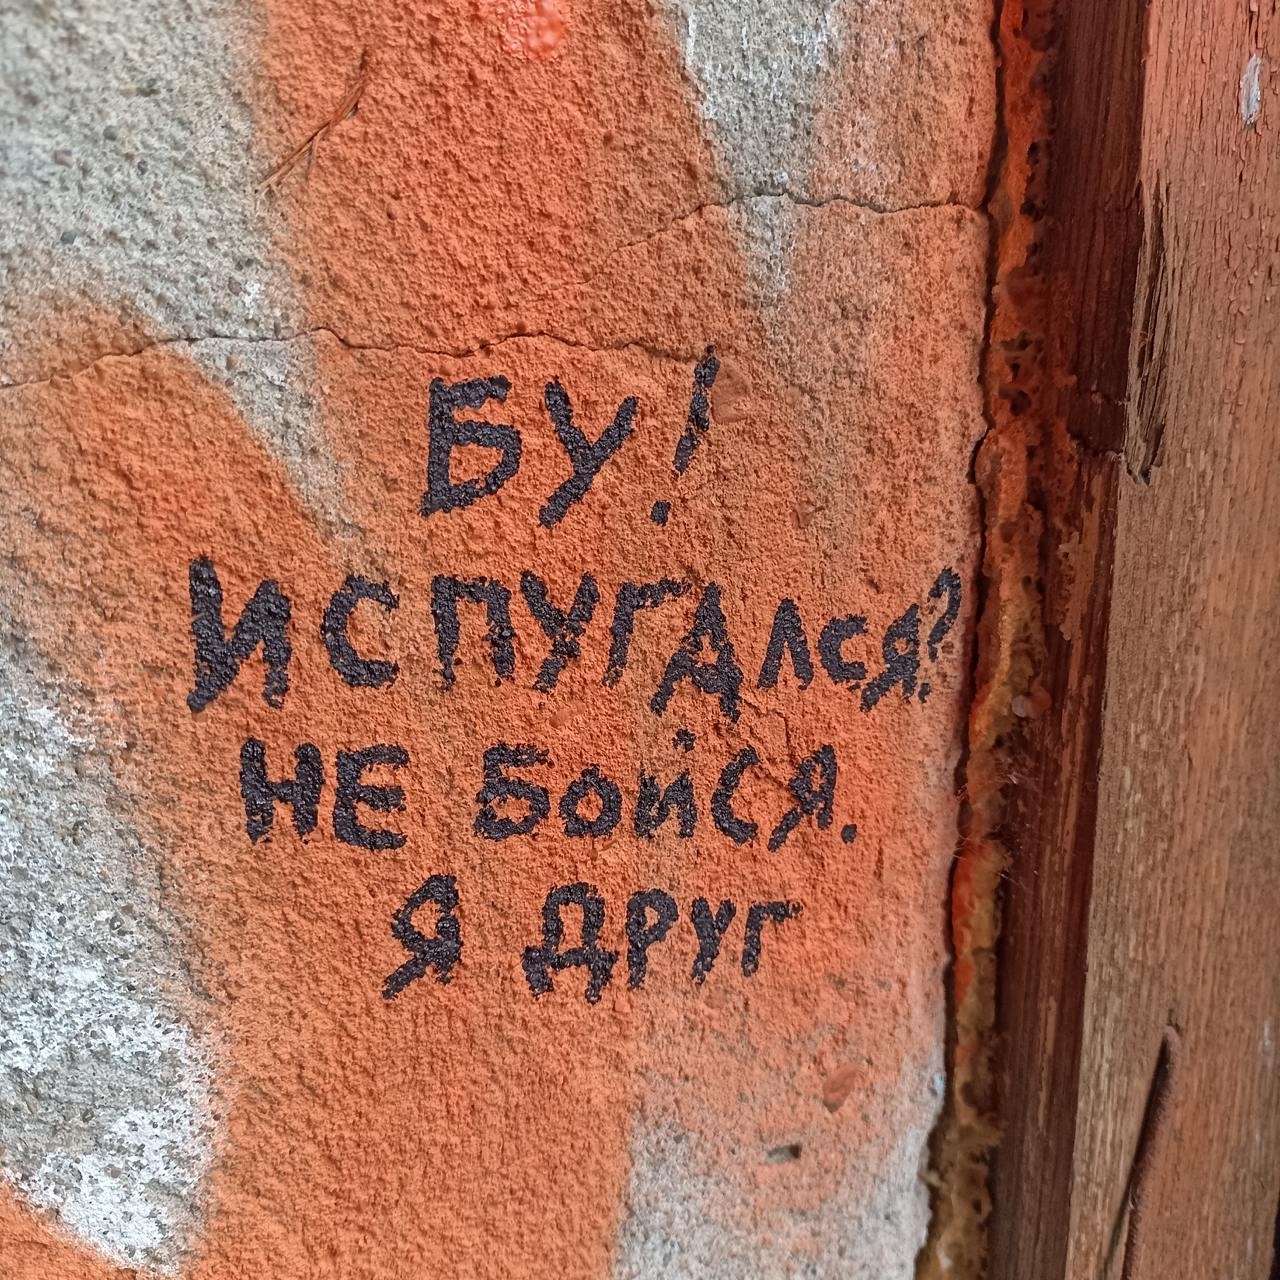 БУ!
ИСПУГАЛСЯ?
НЕ БОЙСЯ.
Я ДРУГ